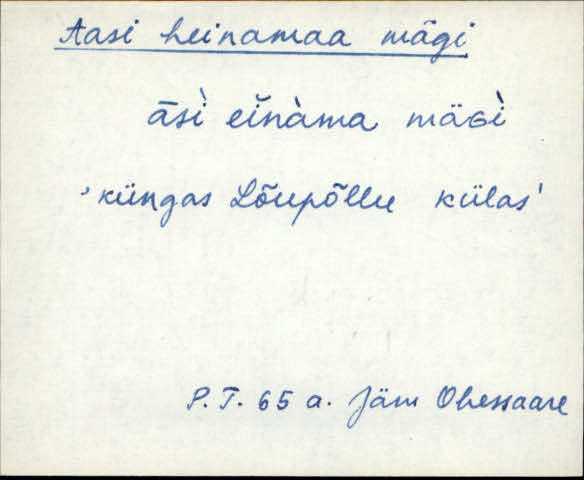 Aasi heinamaa mägi
āsì eĭnàma mäɢì
'küngas Lõupõllu külas'
P.T. 65 a. Jäm Ohessaare